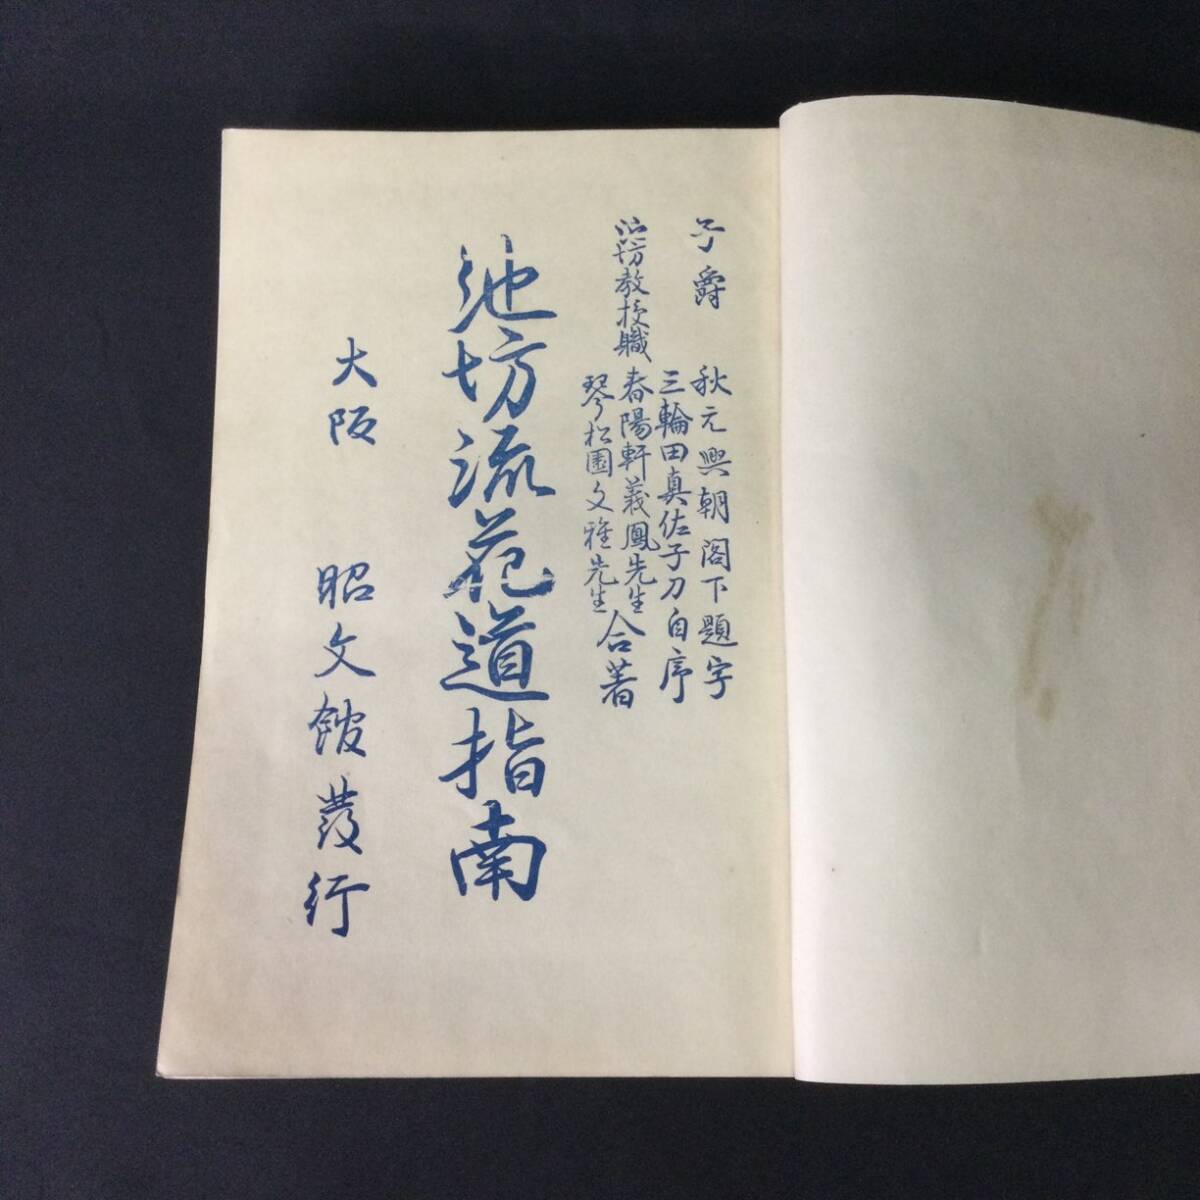 子爵 秋元興朝閣下題字
三輪田真佐子刀自序
池坊教授職 春陽軒義鳳先生
琴松園文雅先生 合著
池坊流花道指南
大阪 昭文館發行